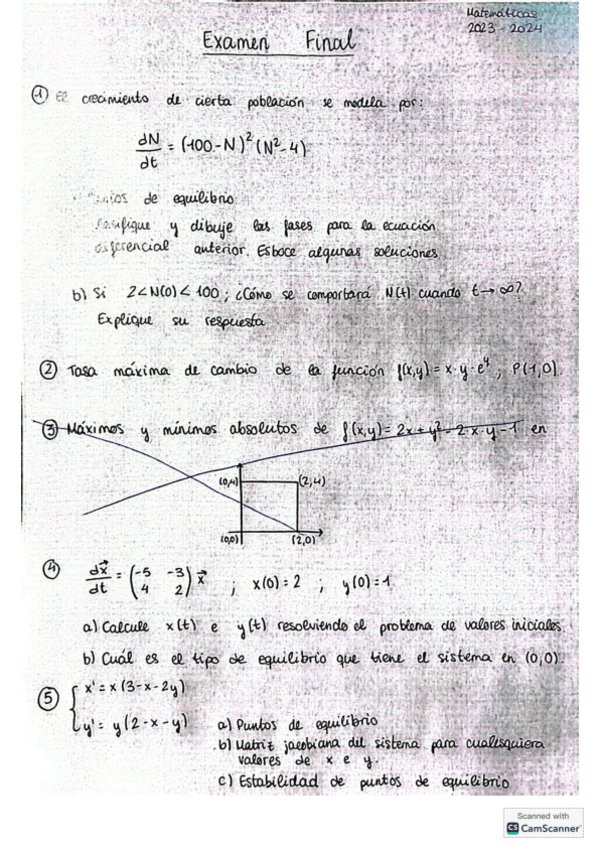 Matemáticas
2023 - 2024
Examen Final
① El crecimiento de cierta población se modela por:
dN/dt = (100-N)² (N²-4)
de equilibrio
y dibuje las fases para la ecuación
anterior. Esboce algunas soluciones
b) Si 2<N(0)<100; ¿Cómo se comportará N(t) cuando t→∞?
Explique su respuesta
② Tasa máxima de cambio de la función f(x,y) = x·y·e^y ; P(1,0).
③ Máximos y mínimos absolutos de f(x,y) = 2x + y² - 2·x·y - 1 en
(0,4) (2,4)
(0,0) (2,0)
④ dx⃗/dt = (-5 -3 4 2) x⃗ ; x(0)=2 ; y(0)=1
a) Calcule x(t) e y(t) resolviendo el problema de valores iniciales.
b) Cuál es el tipo de equilibrio que tiene el sistema en (0,0).
⑤ { x' = x(3-x-2y)
y' = y(2-x-y)
a) Puntos de equilibrio
b) Matriz jacobiana del sistema para cualesquiera
valores de x e y.
c) Estabilidad de puntos de equilibrio
Scanned with
CS CamScanner